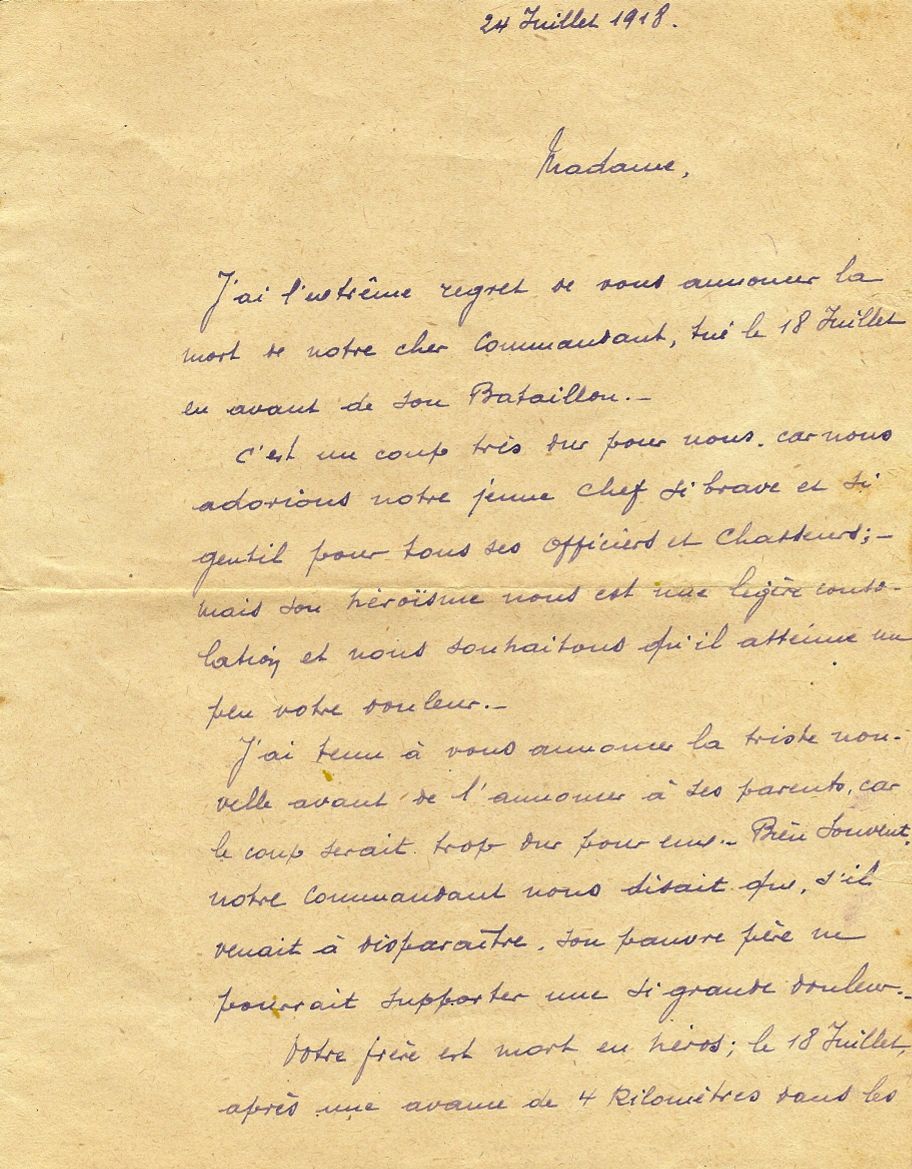 24 Juillet 1918.
Madame,
J'ai l'extrême regret de vous annoncer la
mort de notre cher Commandant, tué le 18 Juillet
en avant de son Bataillon._
C'est un coup très dur pour nous. car nous
adorions notre jeune chef si brave et si
gentil pour tous ses officiers et Chasseurs;_
mais son héroïsme nous est une légère conso-
lation et nous souhaitons qu'il atténue un
peu votre douleur._
J'ai tenu à vous annoncer la triste nou-
velle avant de l'annoncer à ses parents, car
le coup serait trop dur pour eux._ Bien souvent,
notre Commandant nous disait que, s'il
venait à disparaître, son pauvre père ne
pourrait supporter une si grande douleur._
Votre frère est mort en héros; le 18 Juillet,
après une avance de 4 Kilomètres dans les